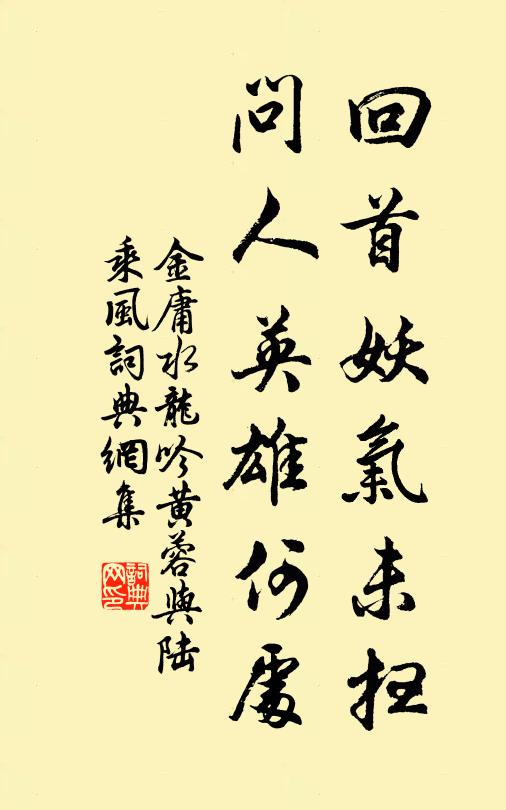 回首妖氣未掃
問人英雄何處
金庸水龍吟黄蓉與陸
乘風詞典網集
詞典网印